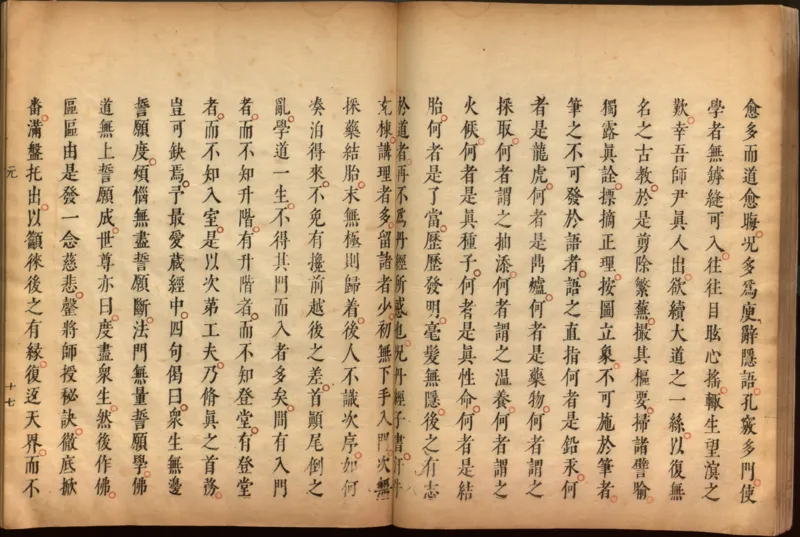 愈多而道愈晦况多爲廋辭隱語孔竅多門使
學者無罅縫可入往往目眩心搖輙生望溟之
歎幸吾師尹眞人出欲續大道之一絲以復無
名之古教於是剪除繁蕪撮其樞要掃諸譬喻
獨露眞詮摽摘正理按圖立象不可施於筆者
筆之不可發於語者語之直指何者是鉛汞何
者是龍虎何者是鼎爐何者是藥物何者謂之
採取何者謂之抽添何者謂之温養何者謂之
火候何者是眞種子何者是眞性命何者是結
胎何者是了當歷歷發明毫髮無隱後之有志
於道者再不爲丹經所惑也况丹經子書汗牛
充棟講理者多留諸者少初無下手入門次無
採藥結胎末無極則歸着後人不識次序如何
湊泊得來不免有攙前越後之差首顚尾倒之
亂學道一生不得其門而入者多矣間有入門
者而不知升階有升階者而不知登堂有登堂
者而不知入室是以次第工夫乃修眞之首務
豈可缺焉予最愛藏經中四句偈曰衆生無邊
誓願度煩惱無盡誓願斷法門無量誓願學佛
道無上誓願成世尊亦曰度盡衆生然後作佛
區區由是發一念慈悲罄將師授秘訣徹底掀
番滿盤托出以籲徠後之有緣復返天界而不
元
十七